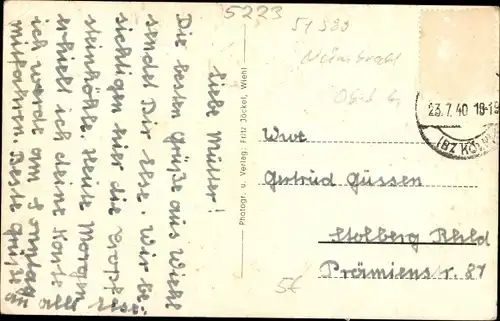 5223
51588
23.7.40 18-19
(BZ Köln)
Liebe Mutter!
Die besten Grüße aus Wiehl
sendet Dir Rese. Wir be-
sichtigen hier die Tropf-
steinhöhle. Heute Morgen
erhielt ich deine Karte
ich werde am Sonntag
mitfahren. Beste Grüße
an alle Rese.
Photogr. u. Verlag: Fritz Jöckel, Wiehl
Wwe
Gertrud Güssen
Stolberg Rhld
Prämienstr. 87
5€